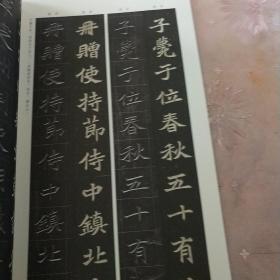 子薨于位春秋五十有
子薨于位春秋五十有
冊贈使持節侍中鎮北
冊贈使持節侍中鎮北